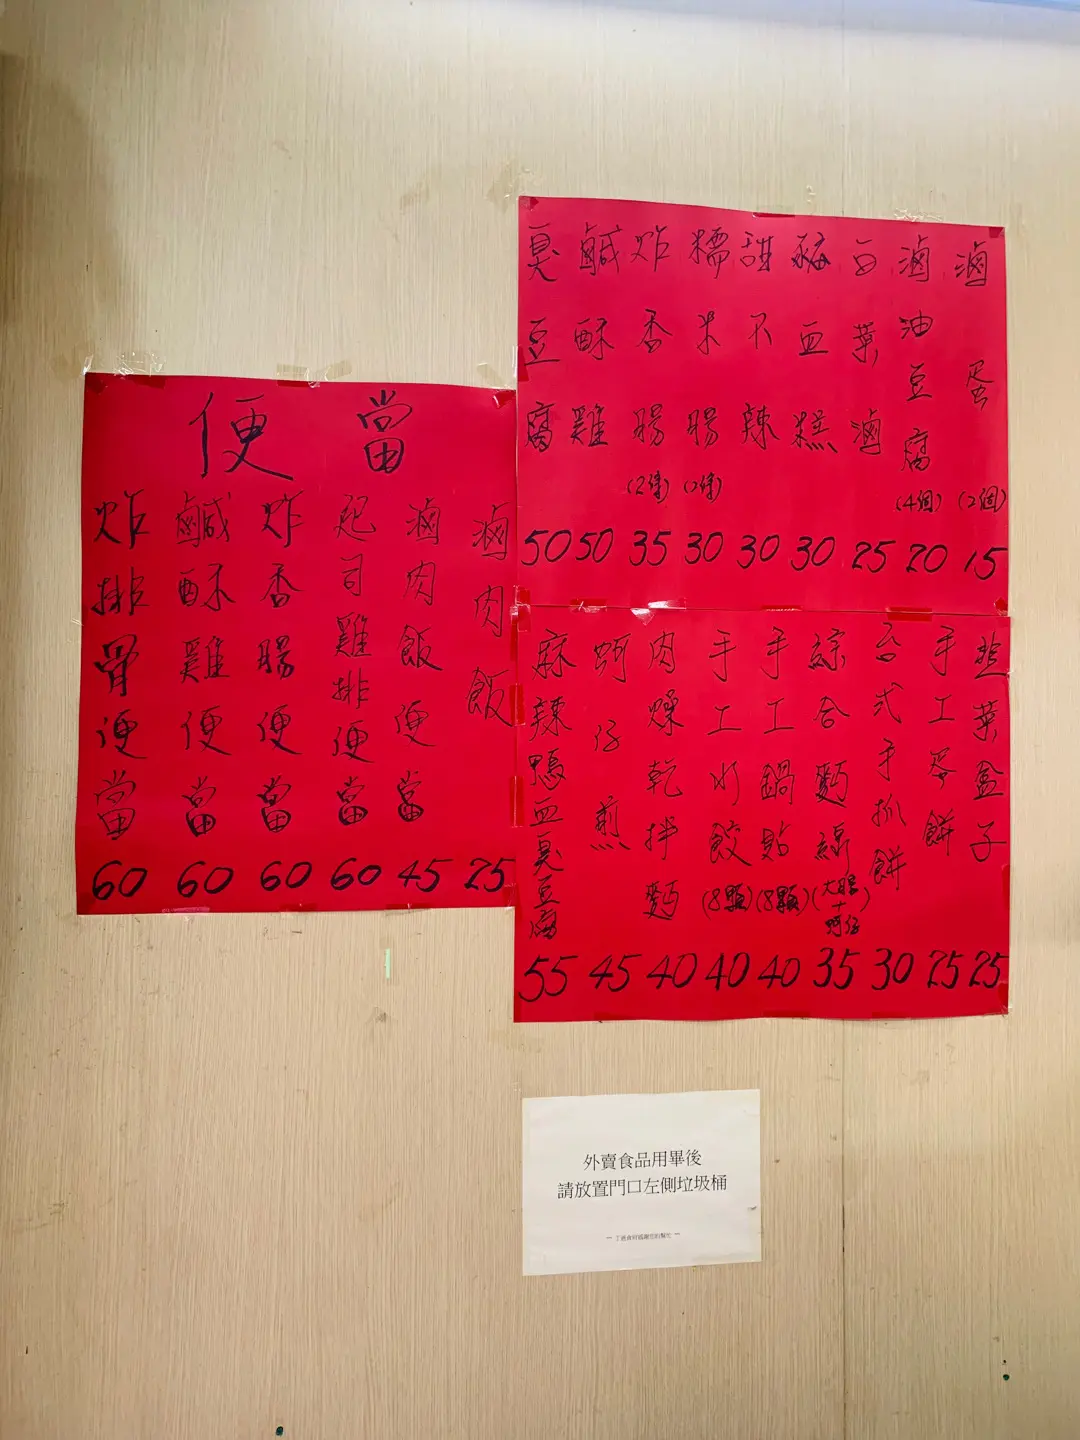 便當
炸排骨便當 60
鹹酥雞便當 60
炸香腸便當 60
起司雞排便當 60
滷肉飯便當 45
滷肉飯 25
臭豆腐 50
鹹酥雞 50
炸香腸(2條) 35
糯米腸(2條) 30
甜不辣 30
豬血糕 30
百葉滷 25
滷油豆腐(4個) 20
滷蛋(2個) 15
麻辣鴨血臭豆腐 55
蚵仔煎 45
肉燥乾拌麵 40
手工水餃(8顆) 40
手工鍋貼(8顆) 40
綜合麵線(大腸+蚵仔) 35
台式手抓餅 30
手工蛋餅 25
韭菜盒子 25
外賣食品用畢後
請放置門口左側垃圾桶